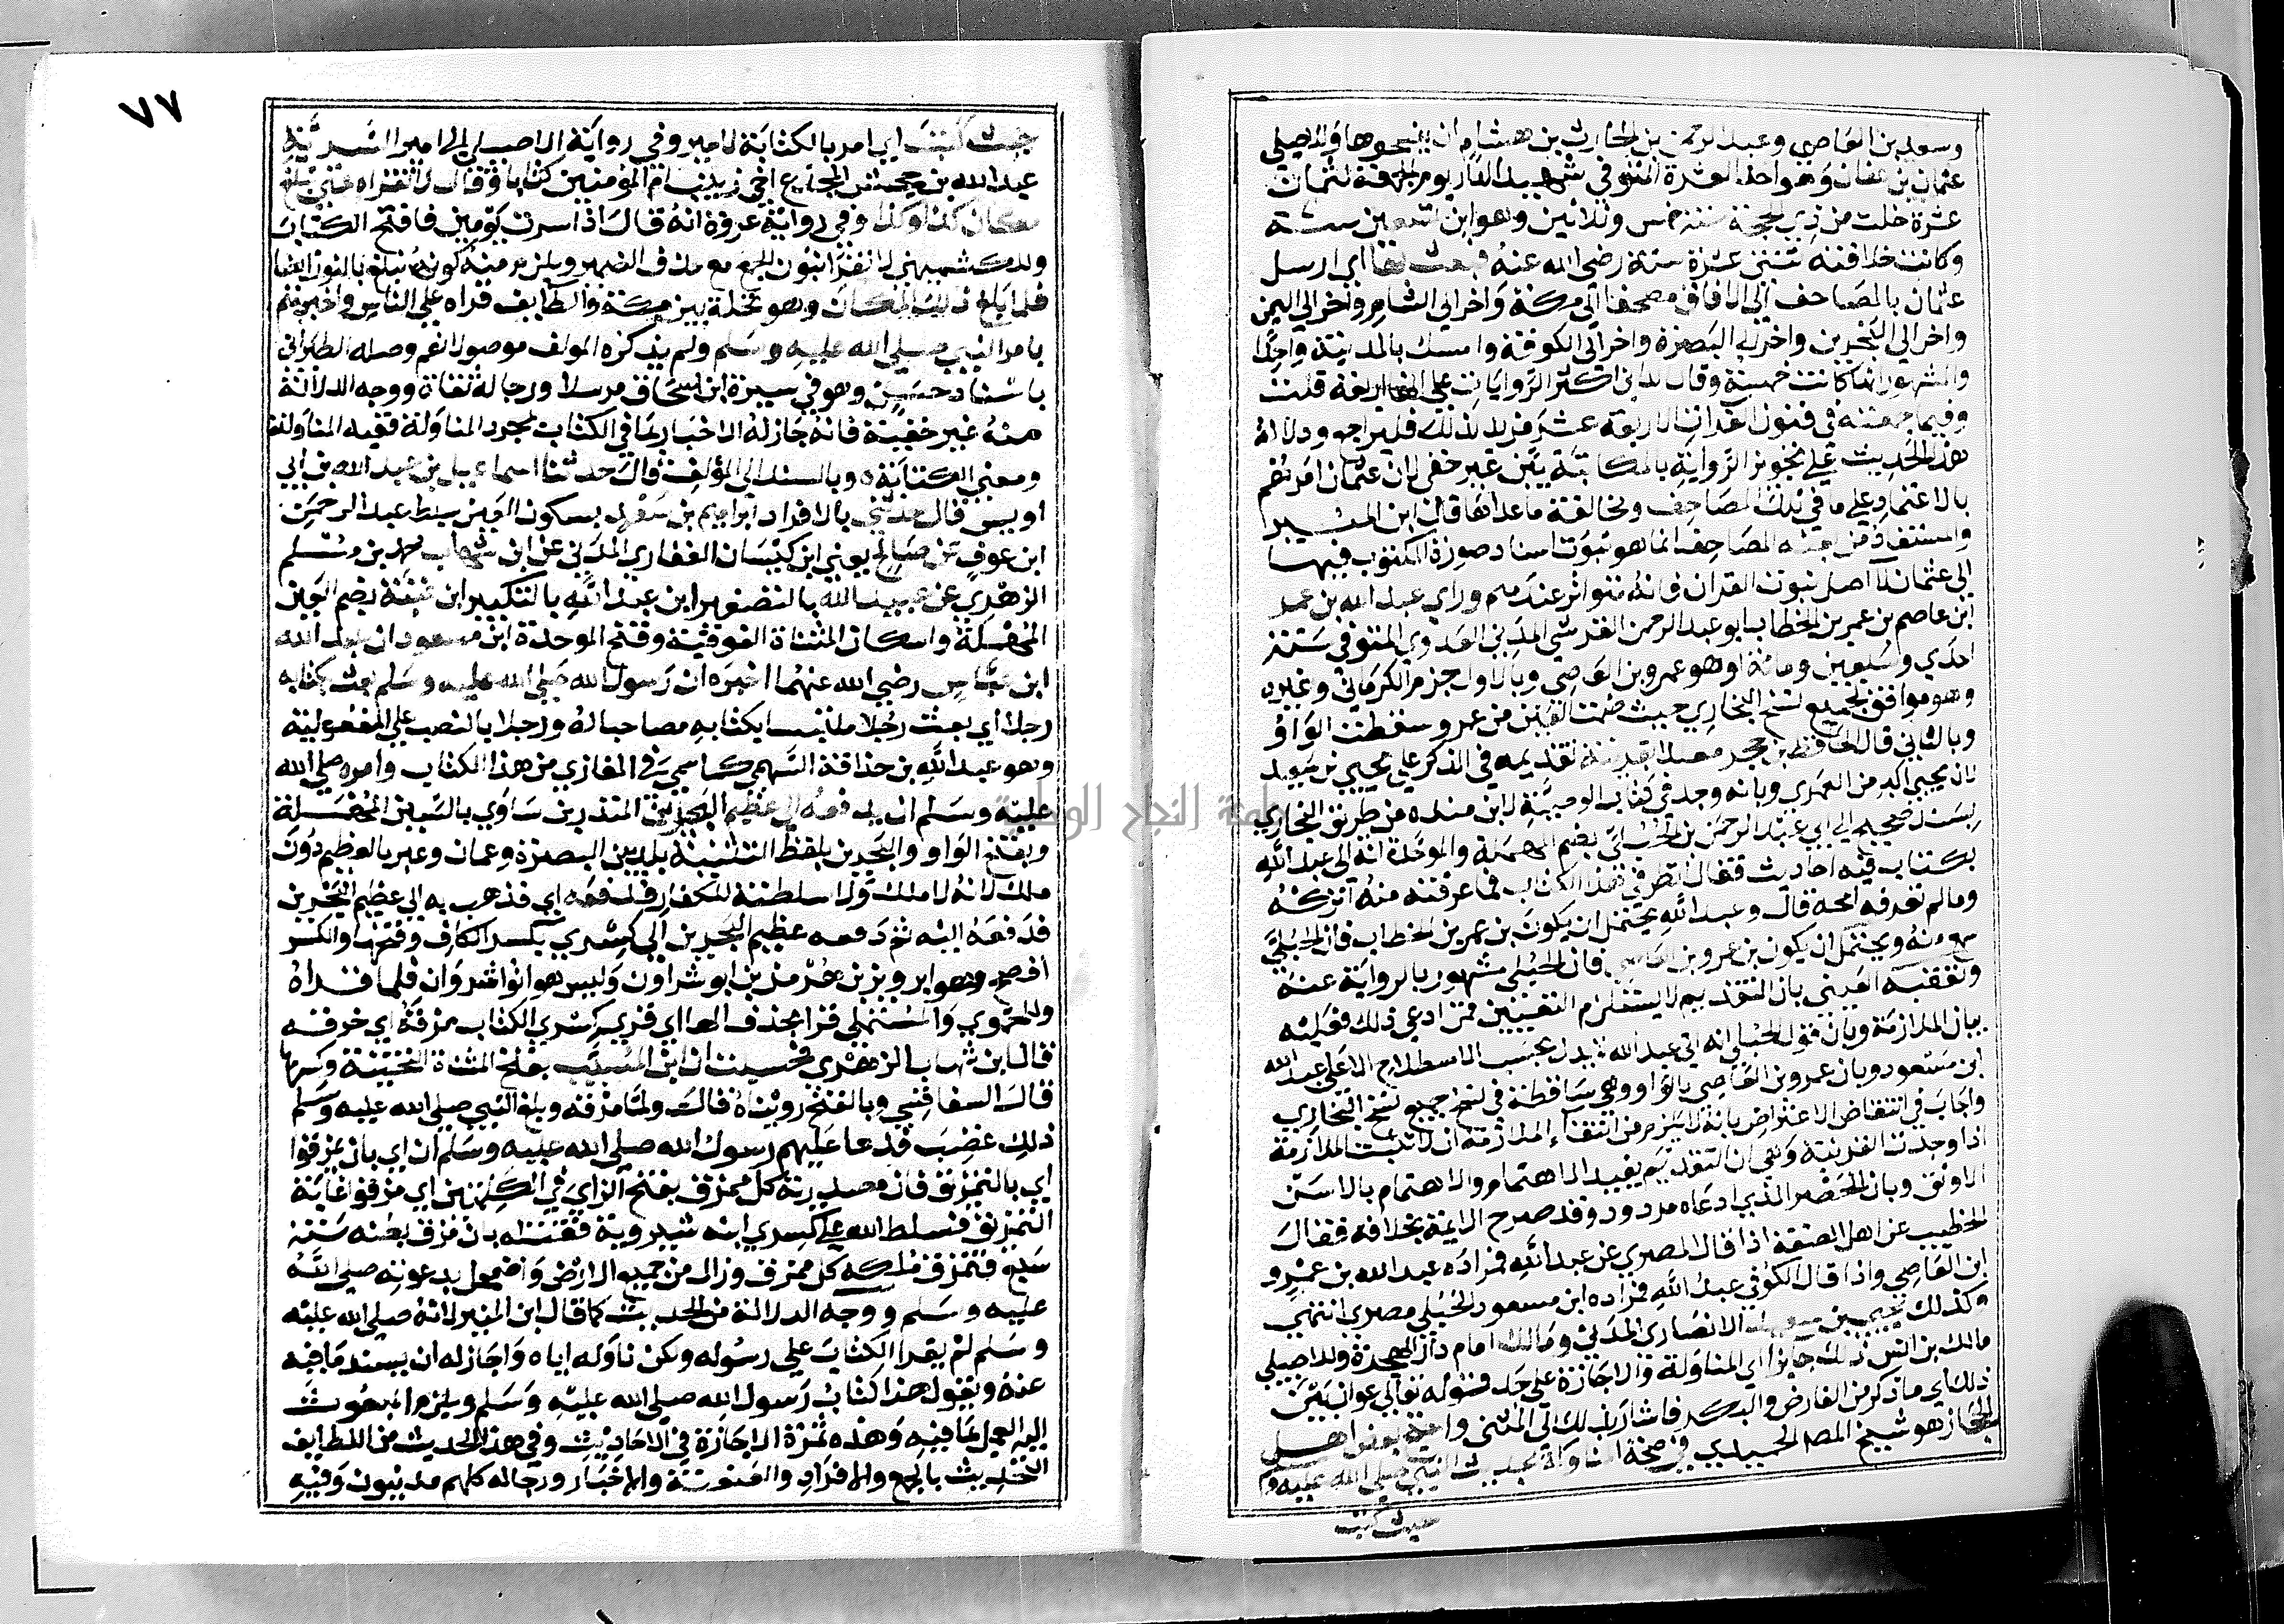 وسعيد بن العاصي وعبد الرحمن بن الحارث بن هشام ان ينسخوها وللاصيلي
عثمان بن عفان وهو احد العشرة المتوفي شهيد الدار يوم الجمعة لثمان
عشرة خلت من ذي الحجة سنة خمس وثلاثين وهو ابن تسعين سنة
وكانت خلافته ثنتي عشرة سنة رضي الله عنه فبعث بها اي ارسل
عثمان بالمصاحف الي الافاق مصحفا الي مكة واخر الي الشام واخر الي اليمن
واخر الي البحرين واخر الي البصرة واخر الي الكوفة وامسك بالمدينة واحدا
والمشهور انها كانت خمسة وقال الداني اكثر الروايات علي انها اربعة قلت
وفيما جمعته في فنون القران الاربعة عشر مزيد لذلك فليراجع ودلالة
هذا الحديث علي تجويز الرواية بالمكاتبة بين غير خفي لان عثمان امرهم
بالاعتماد علي ما في تلك المصاحف ومخالفة ماعداها قال ابن المنير
والمستفاد من بعثه المصاحف انما هو ثبوت اسناد صورة المكتوب فيها
الي عثمان لا اصل ثبوت القران فانه متواتر عندهم وراي عبد الله بن عمر
ابن عاصم بن عمر بن الخطاب ابو عبد الرحمن القرشي المدني العدوي المتوفي سنة
احدي وسبعين ومائة او هو عمرو بن العاصي وبالاول جزم الكرماني وغيره
وهو موافق لجميع نسخ البخاري حيث ضمت العين من عمر وسقطت الواو
وبالثاني قال الحافظ بن حجر معللا بقرينة تقديمه في الذكر علي يحيي بن سعيد
لان يحيي اكبر من العمري وبانه وجد في كتاب الوصية لابن منده من طريق البخاري
بسند صحيح الي ابي عبد الرحمن بن الحبلي بضم المهملة والموحدة انه اتي عبد الله
بكتاب فيه احاديث فقال انظر في هذا الكتاب فما عرفته منه اتركه
ومالم تعرفه امحه قال وعبد الله يحتمل ان يكون بن عمر بن الخطاب فان الحبلي
سمع منه ويحتمل ان يكون بن عمرو بن العاصي فان الحبلي مشهور بالرواية عنه
وتعقبه العيني بان التقديم لا يستلزم التعيين فمن ادعي ذلك فعليه
بيان الملازمة وبان قول الحبلي انه اتي عبد الله لا يدل بحسب الاصطلاح الا علي عبد الله
ابن مسعود وبان عمرو بن العاصي بالواو وهي ساقطة في جميع نسخ البخاري
واجاب في انتقاض الاعتراض بانه لا يلزم من انتفاء الملازمة ان لا تثبت الملازمة
اذا وجدت القرينة وهي ان التقديم يفيد الاهتمام والاهتمام بالاسن
الاوثق وبان الحصر الذي ادعاه مردود وقد صرح الايمة بخلافه فقال
الخطيب عن اهل الصنعة اذا قال المصري عن عبد الله فمراده عبد الله بن عمرو
ابن العاصي واذا قال الكوفي عبد الله فمراده ابن مسعود الحبلي مصري انتهي
وكذلك يحيي بن سعيد الانصاري المدني ومالك امام دار الهجرة وللاصيلي
مالك بن انس ذلك جايزا اي المناولة والاجازة علي حد قوله تعالي عوان بين
ذلك اي ما ذكر من الفارض والبكر فاشار بذلك الي المثني واحتج بعض اهل
الحجاز هو شيخ المص الحميدي في صحة المناولة بحديث النبي صلي الله عليه وم
حيث كتب
٧٧
حيث كتب اي امر بالكتابة لامير وفي رواية الاصيلي الي امير السرية
عبد الله بن جحش المجدع اخي زينب ام المؤمنين كتابا وقال لا تقراه حتي تبلغ
مكان كذا وكذا وفي رواية عروة انه قال اذا سرت يومين فافتح الكتاب
وللكشميهني لا نقرا بنون الجمع مع حذف الضمير ويلزم منه كون نبلغ بالنون ايضا
فلما بلغ ذلك المكان وهو نخلة بين مكة والطايف قراه علي الناس واخبرهم
بامر النبي صلي الله عليه وسلم ولم يذكره المولف موصولا نعم وصله الطبراني
باسناد حسن وهو في سيرة ابن اسحاق مرسلا ورجاله ثقاة ووجه الدلالة
منه غير خفية فانه جاز له الاخبار بما في الكتاب بمجرد المناولة ففيه المناولة
ومعني الكتابة ه وبالسند الي المؤلف قال حدثنا اسماعيل بن عبد الله بن ابي
اويس قال حدثني بالافراد ابراهيم بن سعد بسكون العين سبط عبد الرحمن
ابن عوف عن صالح يعني ابن كيسان الغفاري المدني عن ابن شهاب محمد بن مسلم
الزهري عن عبيد الله بالتصغير ابن عبد الله بالتكبير ابن عتبة بضم العين
المهملة واسكان المثناة الفوقية وفتح الموحدة ابن مسعود ان عبد الله
ابن عباس رضي الله عنهما اخبره ان رسول الله صلي الله عليه وسلم بعث بكتابه
رجلا اي بعث رجلا ملتبسا بكتابه مصاحبا له ورجلا بالنصب علي المفعولية
وهو عبد الله بن حذافة السهمي كما سمي في المغازي من هذا الكتاب وامره صلي الله
عليه وسلم ان يدفعه الي عظيم البحرين المنذر بن ساوي بالسين المهملة
وبفتح الواو والبحرين بلفظ التثنية بلد بين البصرة وعمان وعبر بالعظيم دون
ملك لانه لا ملك ولا سلطنة للكفار فدفعه اي فذهب به الي عظيم البحرين
فدفعه اليه ثم دفعه عظيم البحرين الي كسري بكسر الكاف وفتحها والكسر
افصح وهو ابرويز بن هرمز بن انوشراون وليس هو انوشروان فلما قراه
وللحموي والمستملي قرا بحذف الها اي قري كسري الكتاب مزقه اي خرقه
قال ابن شهاب الزهري فحسبت ان ابن المسيب بفتح المثناة التحتية وكسرها
قال السفاقسي وبالفتح رويناه قال ولما مزقه وبلغ النبي صلي الله عليه وسلم
ذلك غضب فدعا عليهم رسول الله صلي الله عليه وسلم ان اي بان يمزقوا
اي بالتمزيق فان مصدرية كل ممزق بفتح الزاي في الكلمتين اي مزقوا غاية
التمزيق فسلط الله علي كسري ابنه شيرويه فقتله بان مزق بطنه سنة
سبع فتمزق ملكه كل ممزق وزال من جميع الارض واضمحل بدعوته صلي الله
عليه وسلم ووجه الدلالة من الحديث كما قال ابن المنير انه صلي الله عليه
وسلم لم يقرا الكتاب علي رسوله ولكن ناوله اياه واجاز له ان يسند مافيه
عنه ويقول هذا كتاب رسول الله صلي الله عليه وسلم ويلزم المبعوث
اليه العمل بما فيه وهذه ثمرة الاجازة في الاحاديث وفي هذا الحديث من اللطايف
التحديث بالجمع والافراد والعنعنة والاخبار ورجاله كلهم مدنيون وفيه